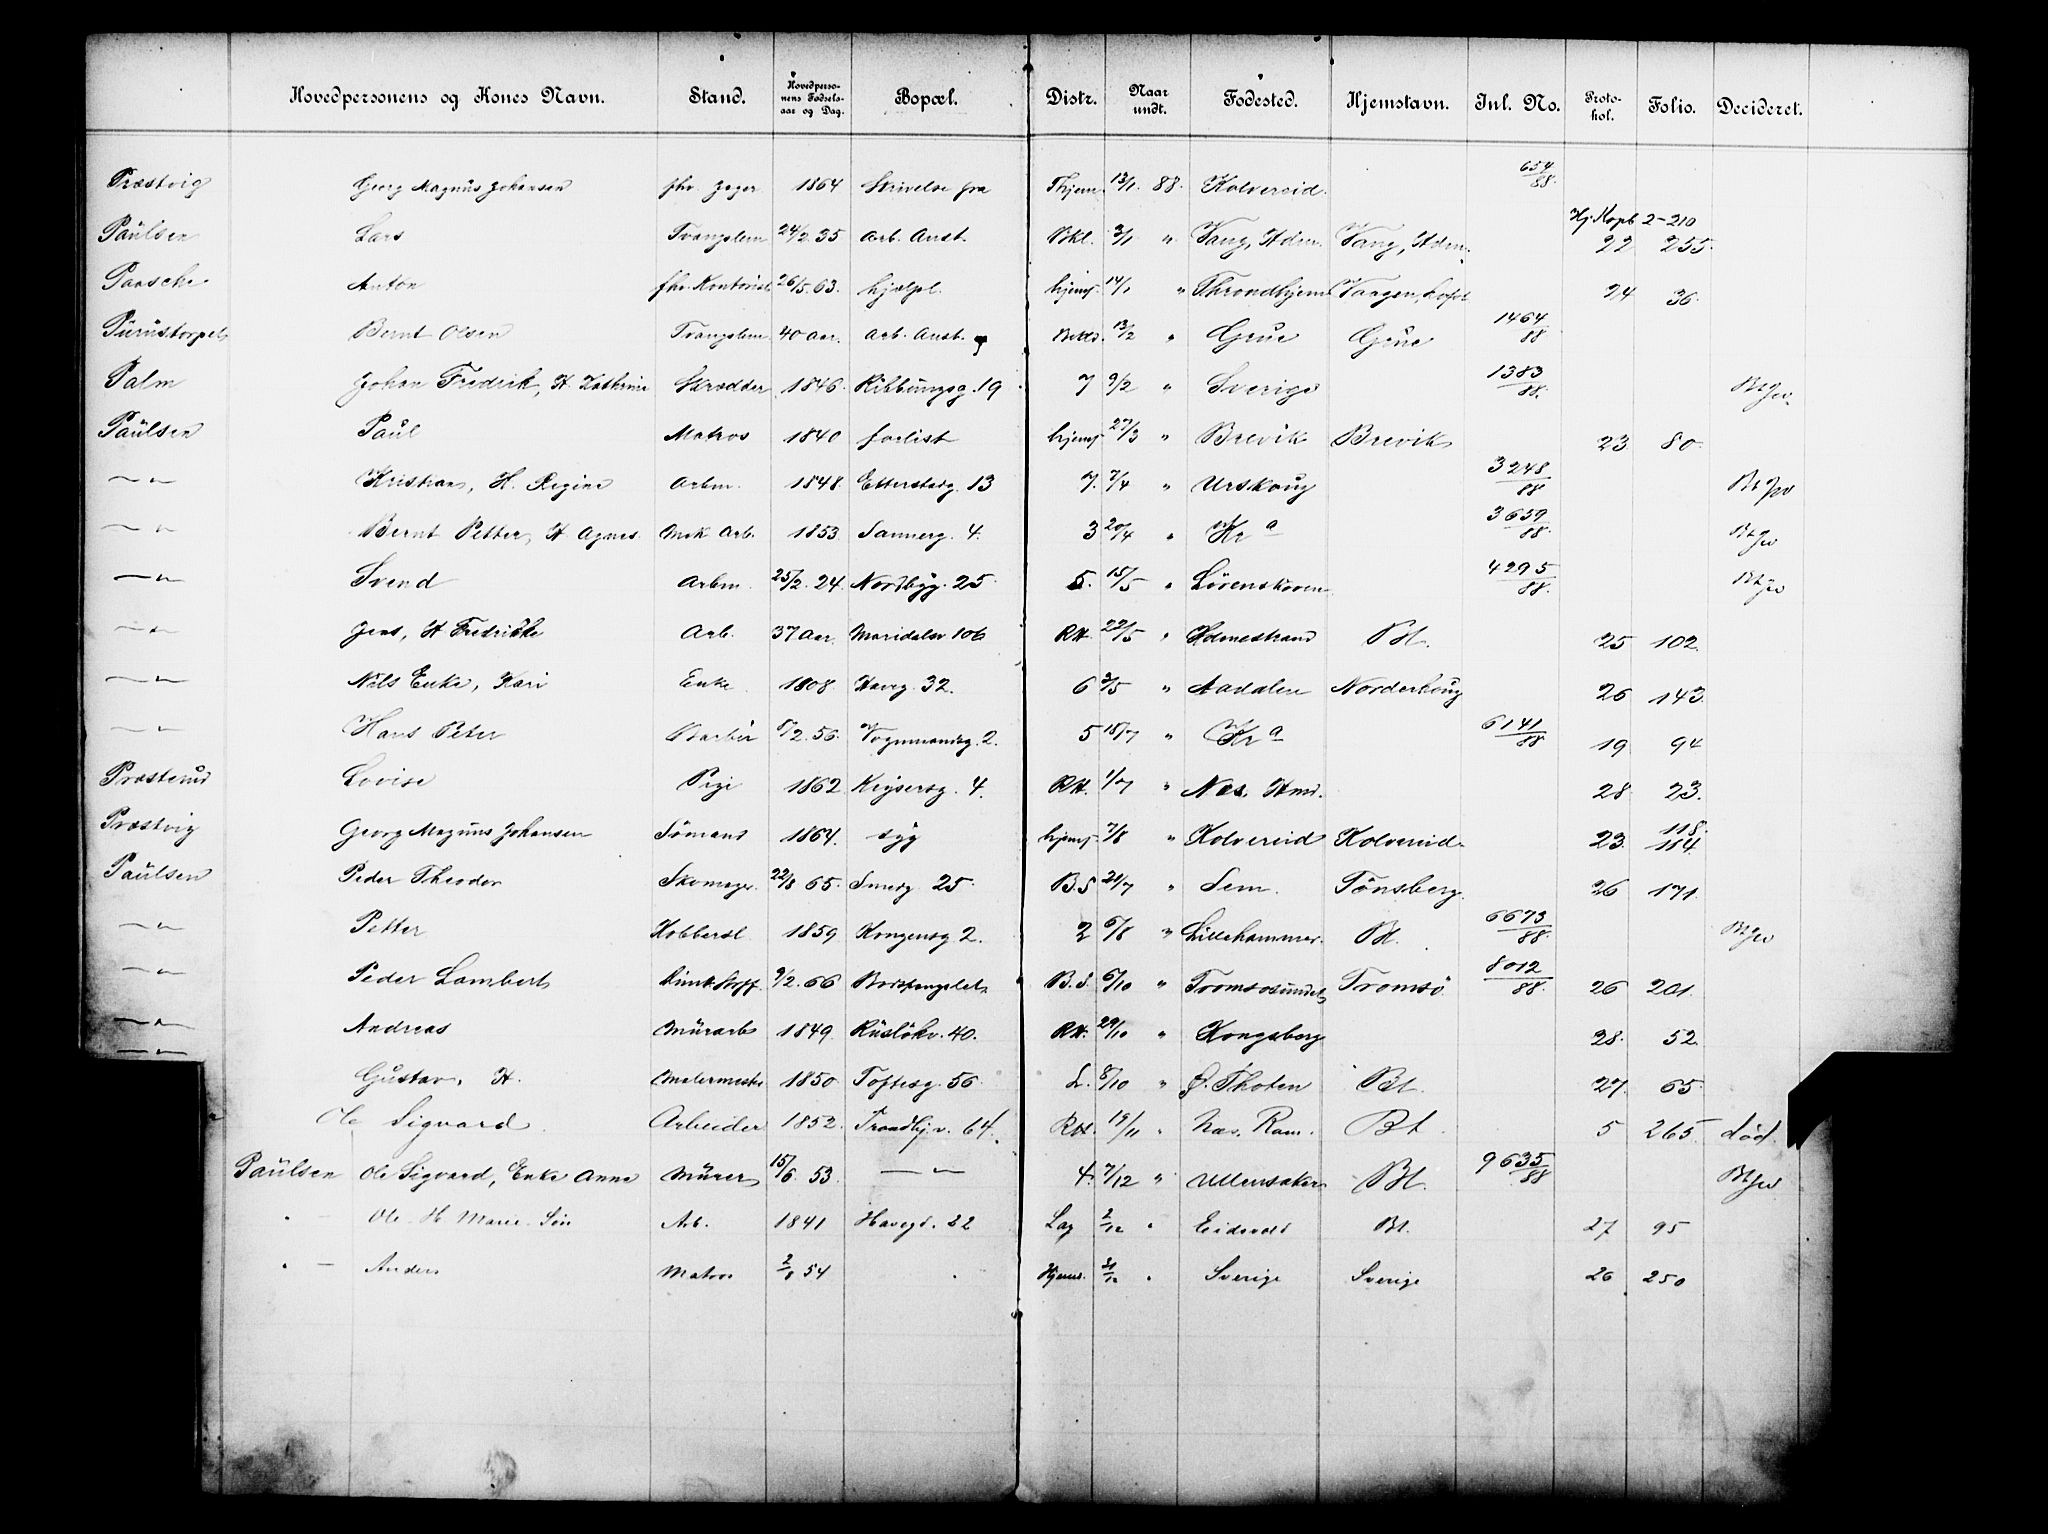 Hovedpersonens og Kones Navn. Stand. Hovedpersonens Fødselsaar og Dag. Bopæl. Distr. Naar undt. Fødested. Hjemstavn. Inl. No. Protokol. Folio. Decideret.
Præstvig Georg Magnus Johansen fhv. Jæger 1864 Skrivelse fra Thjem 13/1 88. Kolvereid. 654/88.
Hj. Kopb 2-210
Paulsen Lars Tvangslem 24/2 35 Arb. Anst. Bkl. 3/1 " Vang, Hdm. Vang, Hdm. 22 255.
Paasche Anton fhv. Kontorist 26/5 63. hjælpl. hjemf. 14/1 " Throndhjem Vaagen, Lofot 24 36.
Purustorpet Bernt Olsen Tvangslem 40 Aar. Arb. Anst. 13/2 " Grue Grue 1464/88
Palm Johan Fredrik, H. Kathrine Skrædder 1846. Ribbungsg. 19 7 9/2 " Sverige 1383/88.
Paulsen Paul Matros 1840 forlist hjemf. 27/3 " Brevik Brevik 23. 80.
—"— Kristian, H. Regine Arbm. 1848. Etterstadg. 13 7. 7/4 " Urskoug 3248/88
—"— Bernt Petter, H Agnes. Mek Arb. 1853. Sannerg. 4. 3 20/4 " Kr a 3659/88.
—"— Svend Arbm. 25/2. 24. Nordbyg. 25. 5. 15/5 " Lørenskoven 4295/88.
—"— Jens, H Fredrikke Arb. 37 Aar. Maridalsv 106 RH. 22/5 " Holmestrand Bt. 25 102.
—"— Nils Enke, Kari Enke 1808. Haveg. 32. 6 3/5 " Aadalen Norderhoug 26 143.
—"— Hans Peter Barber 8/2. 56. Vognmandsg. 2. 5 18/7 " Kr a 6141/88 19 94
Præsterud Lovise Pige 1862 Keysersg. 4. RH. 1/7 " Næs, Hmd. 28 23.
Præstvig Georg Magnus Johansen Sømand 1864. syg hjemf. 7/8 " Kolvereid Kolvereid. 23. 118. 114.
Paulsen Peder Theodor Skomager. 22/8 65. Smedg 25. B.S 21/7 " Sem. Tønsberg. 26 171.
—"— Petter Kobbersl. 1859 Kongensg 2. 2 6/8 " Lillehammer. Bt. 6673/88.
—"— Peder Lambert 9/2. 66 Bodsfængslet. B.S. 6/10 " Tromsøsundet Tromsø 8012/88. 26 201.
—"— Andreas Murarb 1849. Rusløkv. 40. RH. 29/10 " Kongsberg 28. 52.
—"— Gustav, H. Malermester 1850. Toftesg. 56. L. 8/10 " Ø. Thoten Bt 27. 65.
Ole Sigvard Arbeider 1852. Trondhj.v. 64. RH. 19/11 " Næs. Rom. Bt. 5 265. død.
Paulsen Ole Sigvard, Enke Anna Murer 15/6. 53. —"— 4. 7/12 " Ullensaker Bt. 9635/88
" — Ole H Marie Søn Arb. 1841 Havegd. 32 Lag 2/12 " Eidsvold Bt. 27 95
" — Anders Matros 2/8 54 Hjems. 21/12 " Sverige Sverige 26 250